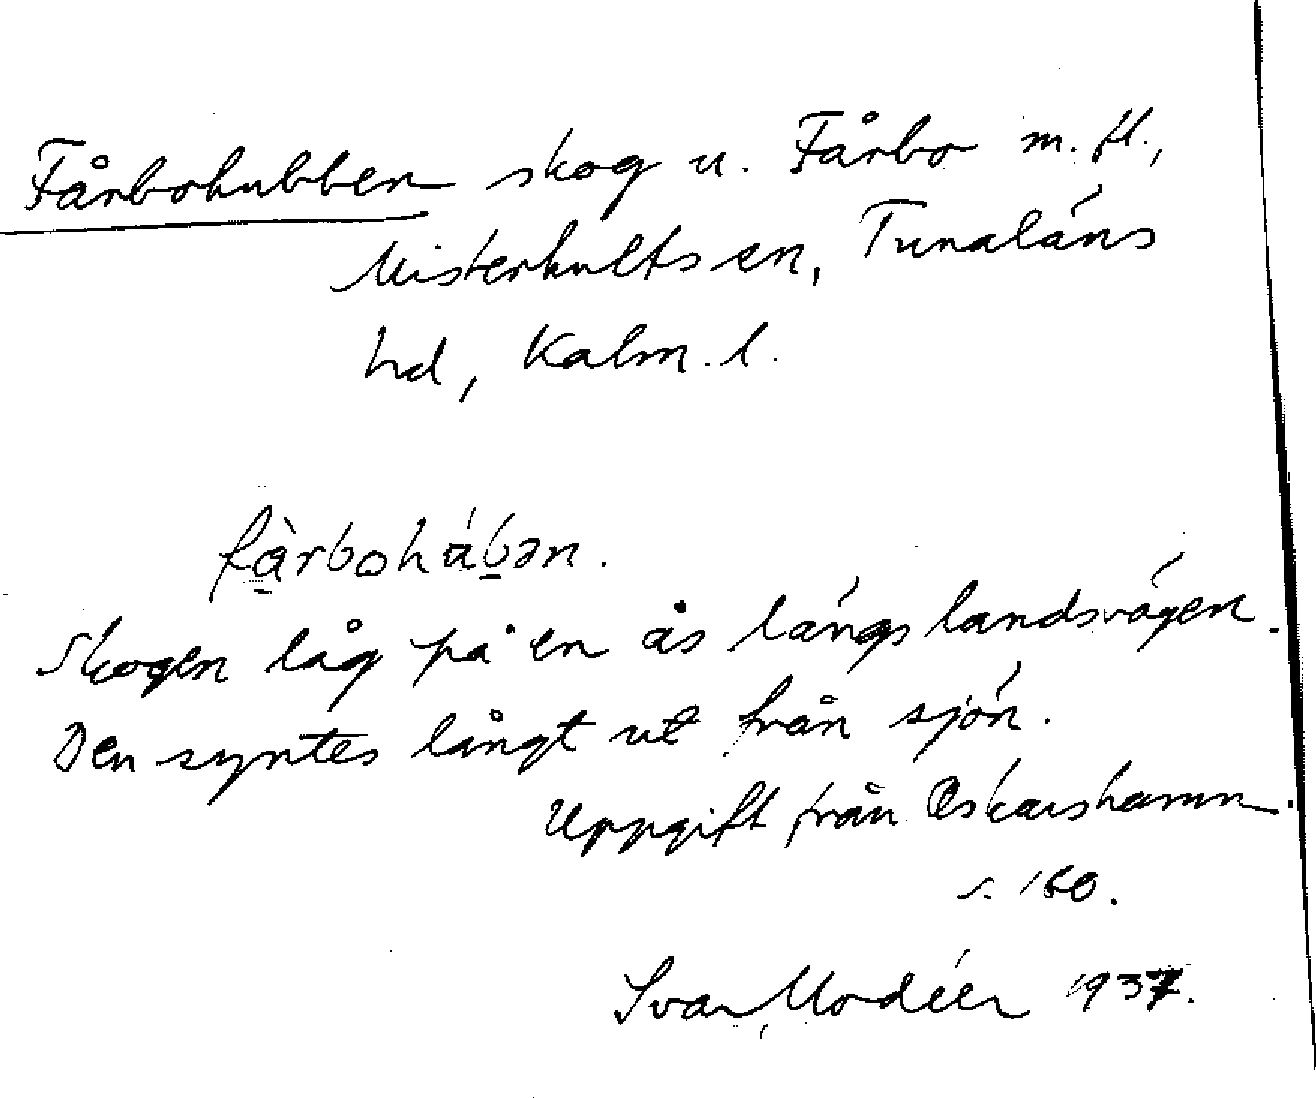 Fårbohubben skog u. Fårbo m. fl.,
Misterhults sn, Tunaläns
hd, Kalm. l.
Skogen låg på en ås längs landsvägen.
Den syntes långt ut från sjön.
Uppgift från Oskarshamn.
s. 160.
Ivar Modéer 1937.